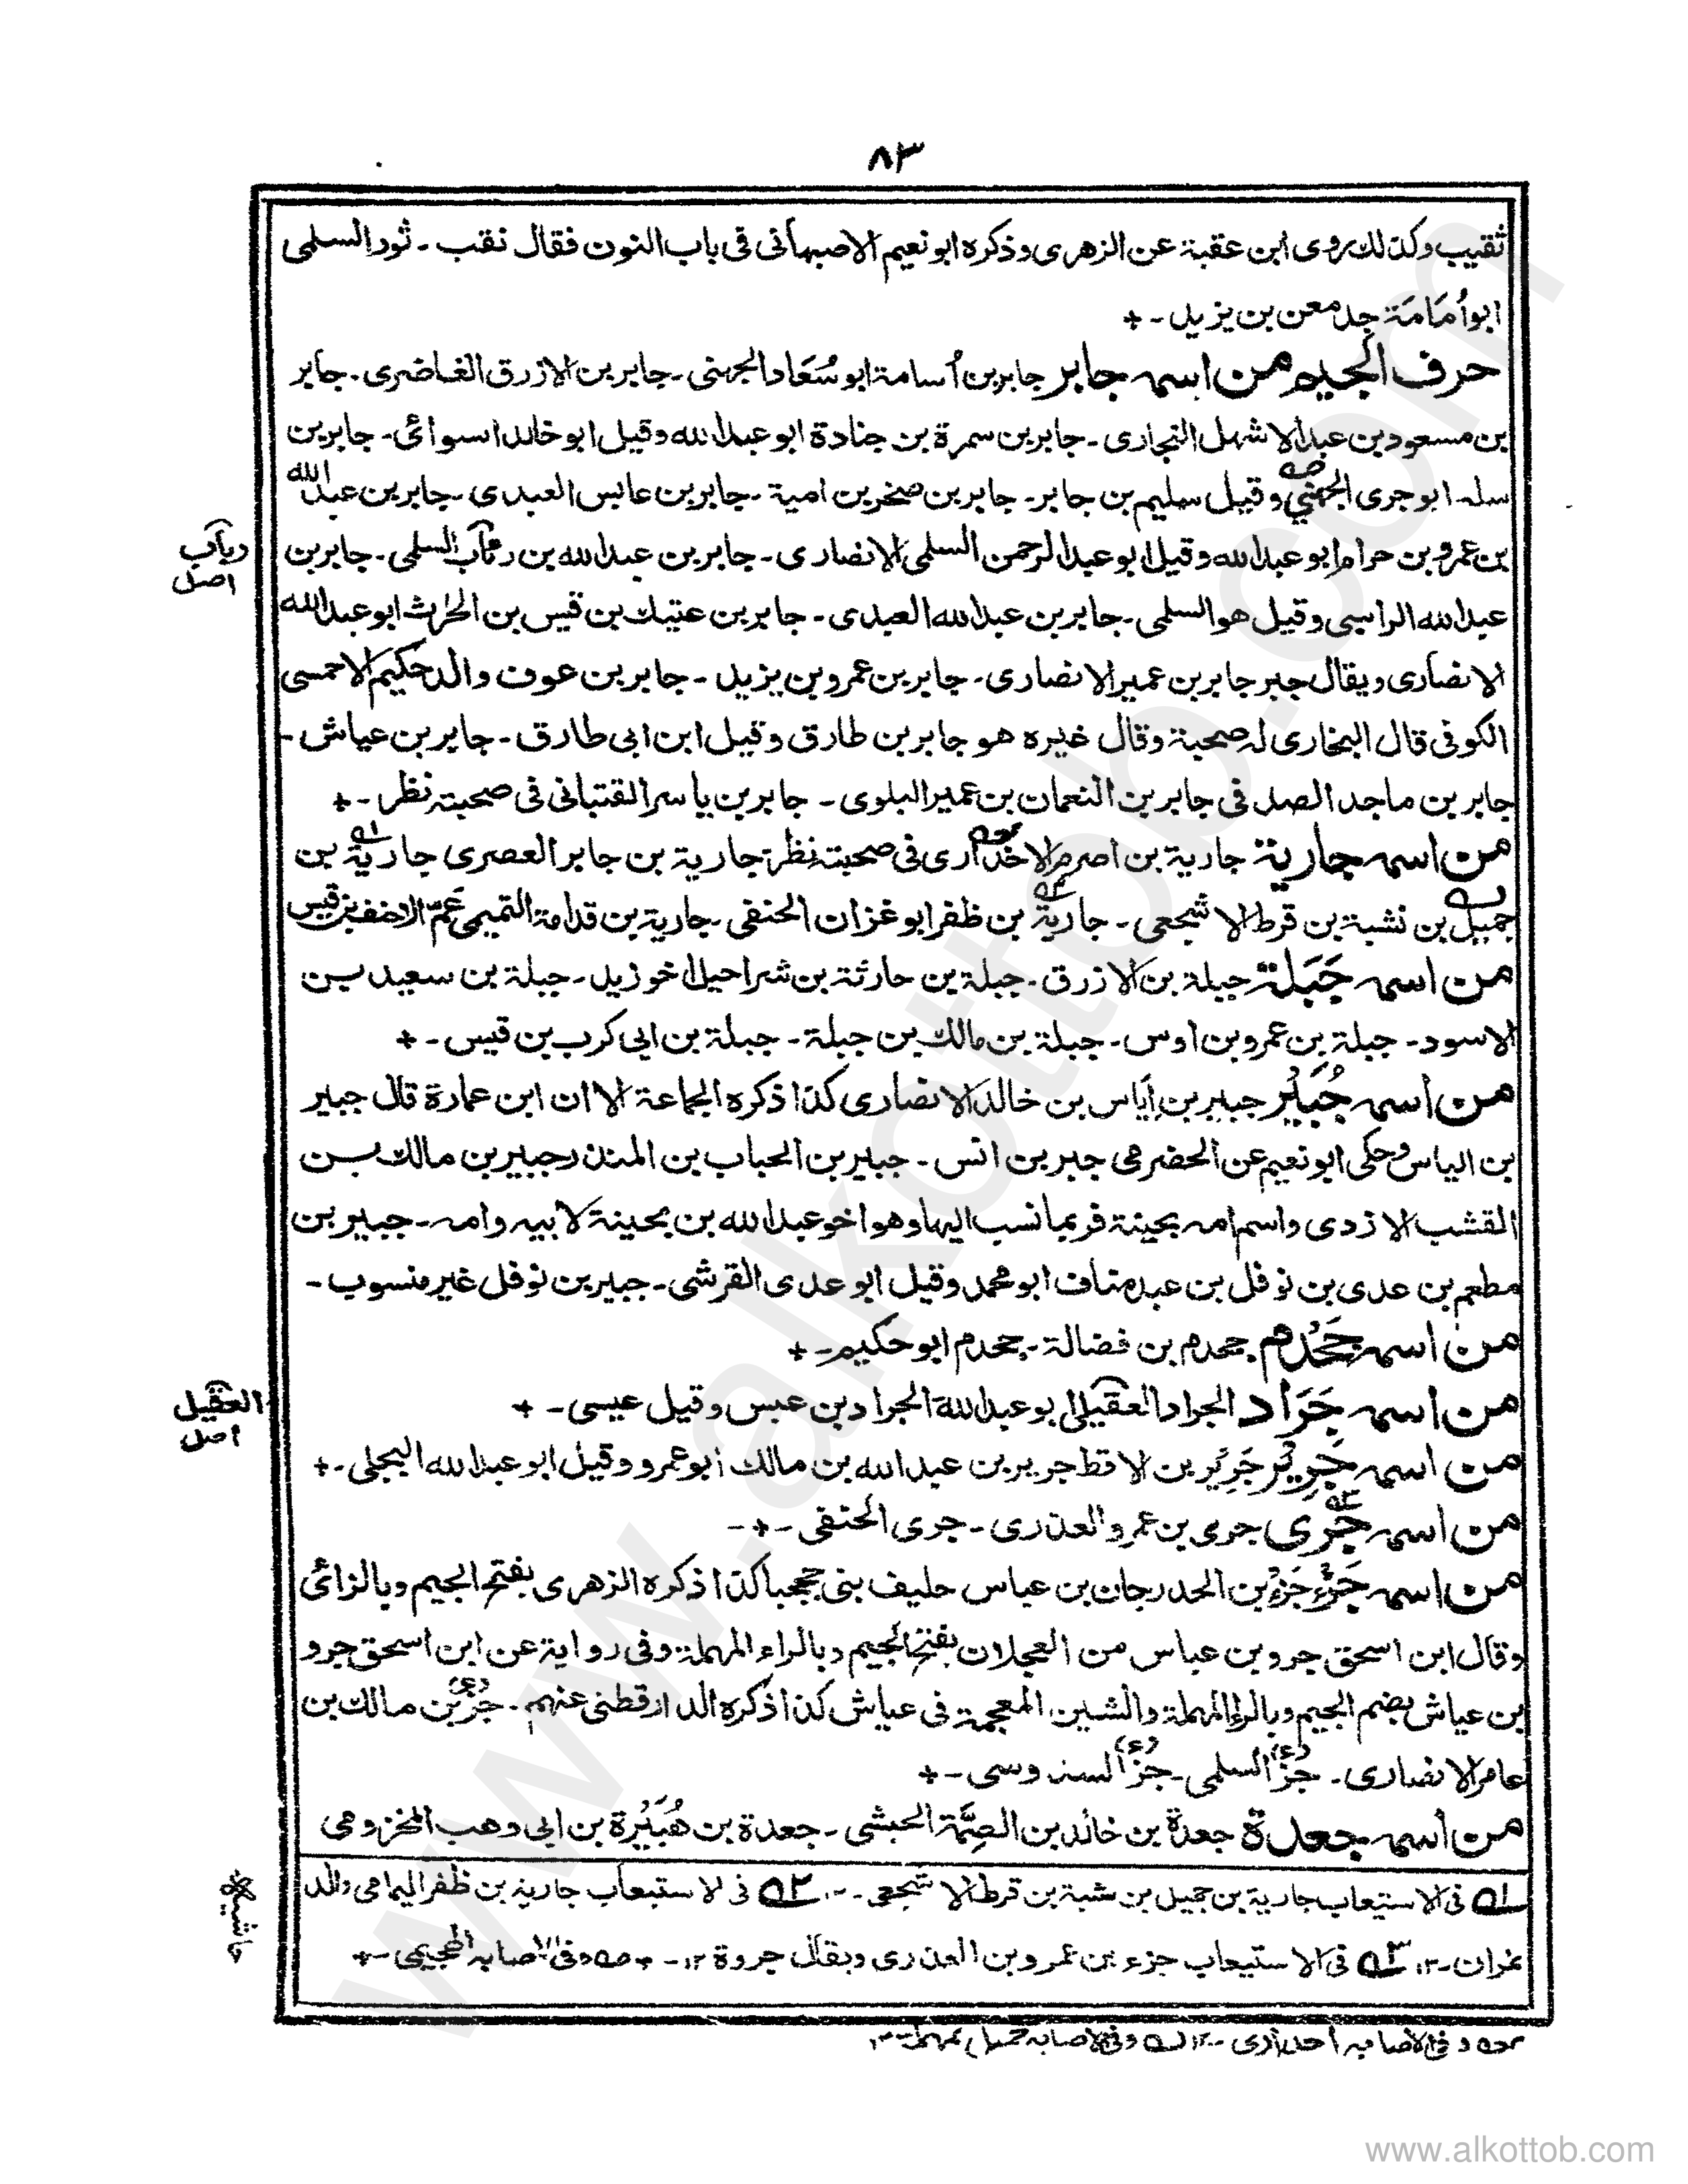 ٨٣
ثقيب وكذلك روى ابن عقبة عن الزهرى وذكره ابو نعيم الاصبهانى فى باب النون فقال نقب ـ ثور السلمى
ابو أُمَامَة جد معن بن يزيد ـ +
حرف الجيم من اسمه جابر جابر بن أُسامة ابو سُعَاد الجهنى ـ جابر بن الازرق الغاضرى ـ جابر
بن مسعود بن عبد الاشهل النجارى ـ جابر بن سمرة بن جنادة ابو عبد الله وقيل ابو خالد اسوائى ـ جابر بن
سلمه ابو جرى الجهنى وقيل سليم بن جابر ـ جابر بن صخر بن امية ـ جابر بن عابس العبدى ـ جابر بن عبد الله
بن عمرو بن حرام ابو عبد الله وقيل ابو عبد الرحمن السلمى الانصارى ـ جابر بن عبد الله بن رئاب السلمى ـ جابر بن
رياب
اصل
عبد الله الراسبى وقيل هو السلمى ـ جابر بن عبد الله العبدى ـ جابر بن عتيك بن قيس بن الحٰرث ابو عبد الله
الانصارى ويقال جبر جابر بن عمير الانصارى ـ جابر بن عمرو بن يزيد ـ جابر بن عوف والد حكيم الاحمسى
الكوفى قال البخارى له صحبة وقال غيره هو جابر بن طارق وقيل ابن ابى طارق ـ جابر بن عياش ـ
جابر بن ماجد الصدفى جابر بن النعمان بن عمير البلوى ـ جابر بن ياسر القتبانى فى صحبته نظر ـ +
من اسمه جارية جارية بن اصرم الاخدارى فى صحبته نظر جارية بن جابر العصرى جارية بن
جميل بن نشبة بن قرط الاشجعى ـ جارية بن ظفر ابو غزان الحنفى ـ جارية بن قدامة التميمى عَمّ الاحنف بن قيس
من اسمه جَبَلَة جبلة بن الازرق ـ جبلة بن حارثة بن شراحيل اخو زيد ـ جبلة بن سعيد بن
الاسود ـ جبلة بن عمرو بن اوس ـ جبلة بن مالك بن جبلة ـ جبلة بن ابى كرب بن قيس ـ +
من اسمه جُبَيْر جبير بن إياس بن خالد الانصارى كذا ذكره الجماعة الا ان ابن عمارة قال جبير
بن الياس وحكى ابو نعيم عن الحضرمى جبر بن انس ـ جبير بن الحباب بن المنذر جبير بن مالك بن
القشب الازدى واسم امه بحينة فربما نسب اليها وهو اخو عبد الله بن بحينة لابيه وامه ـ جبير بن
مطعم بن عدى بن نوفل بن عبد مناف ابو محمد وقيل ابو عدى القرشى ـ جبير بن نوفل غير منسوب ـ
من اسمه جَحْدم جحدم بن فضالة ـ جحدم ابو حكيم ـ +
من اسمه جَرَاد الجراد العقيلى ابو عبد الله الجراد بن عبس وقيل عيسى ـ +
العقيل
اصل
من اسمه جَرِيْر جَرِيْر بن الاقط جرير بن عبد الله بن مالك ابو عمرو وقيل ابو عبد الله البجلى ـ +
من اسمه جَرى جرى بن عمرو العذرى ـ جرى الحنفى ـ + ـ
من اسمه جَزْء جَزْء بن الحدرجان بن عباس حليف بنى جحجبا كذا ذكره الزهرى بفتح الجيم وبالزائى
وقال ابن اسحق جرو بن عباس من العجلان بفتح الجيم وبالراء المهملة وفى رواية عن ابن اسحق جرو
بن عياش بضم الجيم وبالراء المهملة والشين المعجمة فى عياش كذا ذكره الدارقطنى عنهم ـ جز (ء) بن مالك بن
عامر الانصارى ـ جز (ء) السلمى ـ جز (ء) السندوسى ـ +
من اسمه جعدة جعدة بن خالد بن الصِّمَّة الحبشى ـ جعدة بن هُبَيْرة بن ابى وهب المخزومى
حاشية
١ه فى الاستيعاب جارية بن جميل بن شبة بن قرط الاشجعى ـ ١٢ ٢ه فى الاستيعاب جارية بن ظفر اليمامى والد
نمران ـ ١٢ ٣ه فى الاستيعاب جزء بن عمرو بن العذرى ويقال جروة ١٢ ـ + وفى الاصابه الهجيمى ـ +
وفى الاصابه احدارى ـ ١٢ وفى الاصابه حميل بمهملة ـ ١٢
www.alkottob.com
www.alkottob.com